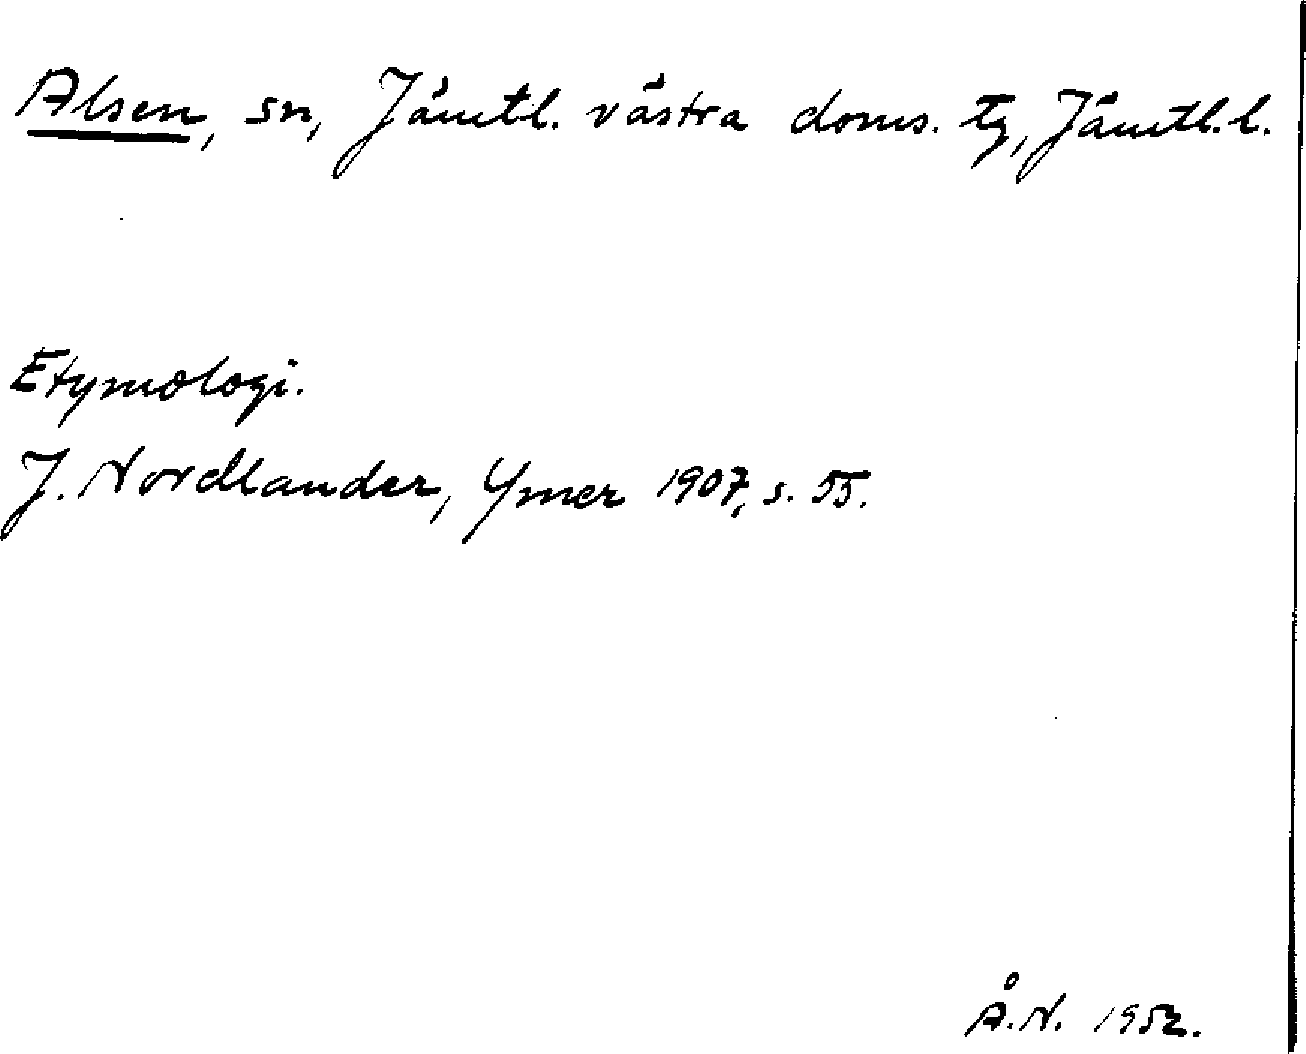 Alsen, sn, Jämtl. västra doms. tg, Jämtl. l.
Etymologi.
J. Nordlander, Ymer 1907, s. 55.
Å.N. 1952.